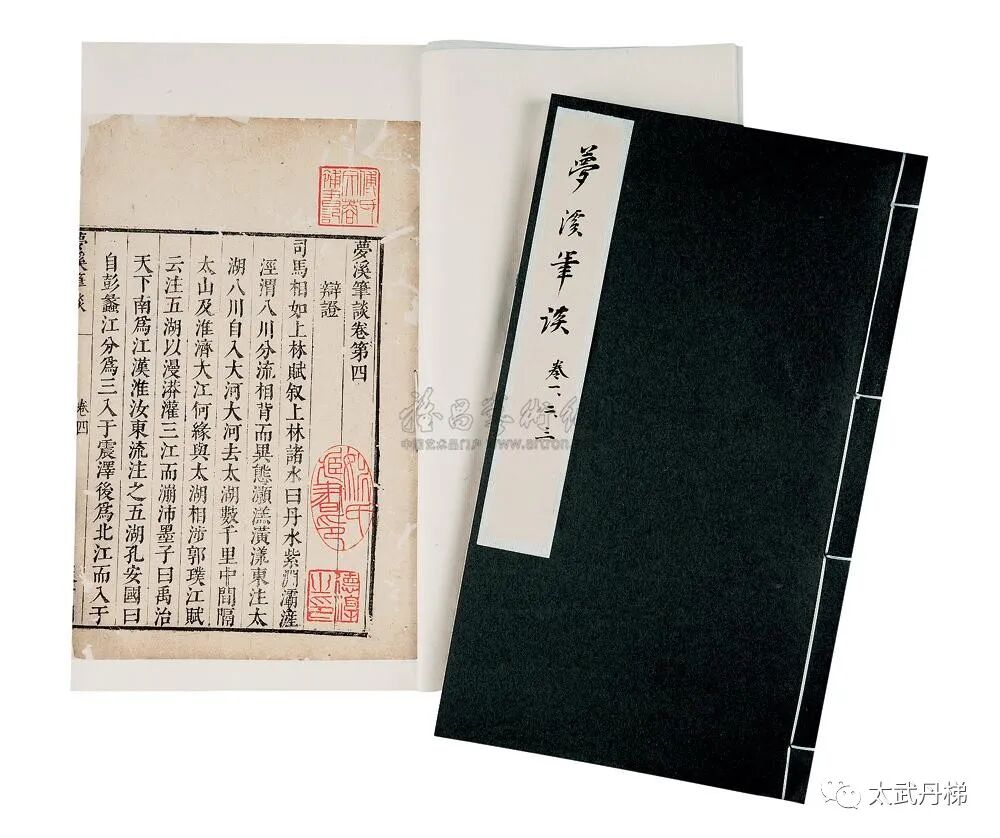 夢溪筆談卷第四
辯證
司馬相如上林賦叙上林諸水曰丹水紫淵灞滻
涇渭八川分流相背而異態灝溔潢漾東注太
湖八川自入大河大河去太湖數千里中間隔
太山及淮濟大江何緣與太湖相涉郭璞江賦
云注五湖以漫漭灌三江而漰沛墨子曰禹治
天下南爲江漢淮汝東流注之五湖孔安國曰
自彭蠡江分爲三入于震澤後爲北江而入于
夢溪筆談
卷四
德淳
之印
夢溪筆談 卷一、二、三
中国艺术品门户 www.artron.
太武丹梯